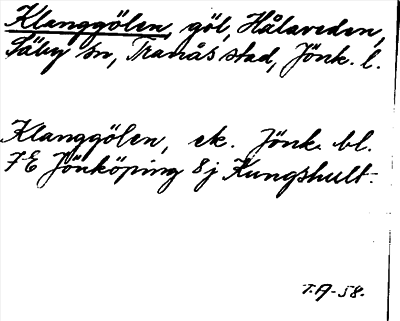 Klanggölen, göl, Hålaveden,
Säby sn, Tranås stad, Jönk. l.
Klanggölen, ek. Jönk. bl.
7E Jönköping 8j Kungshult.
T.A-58.